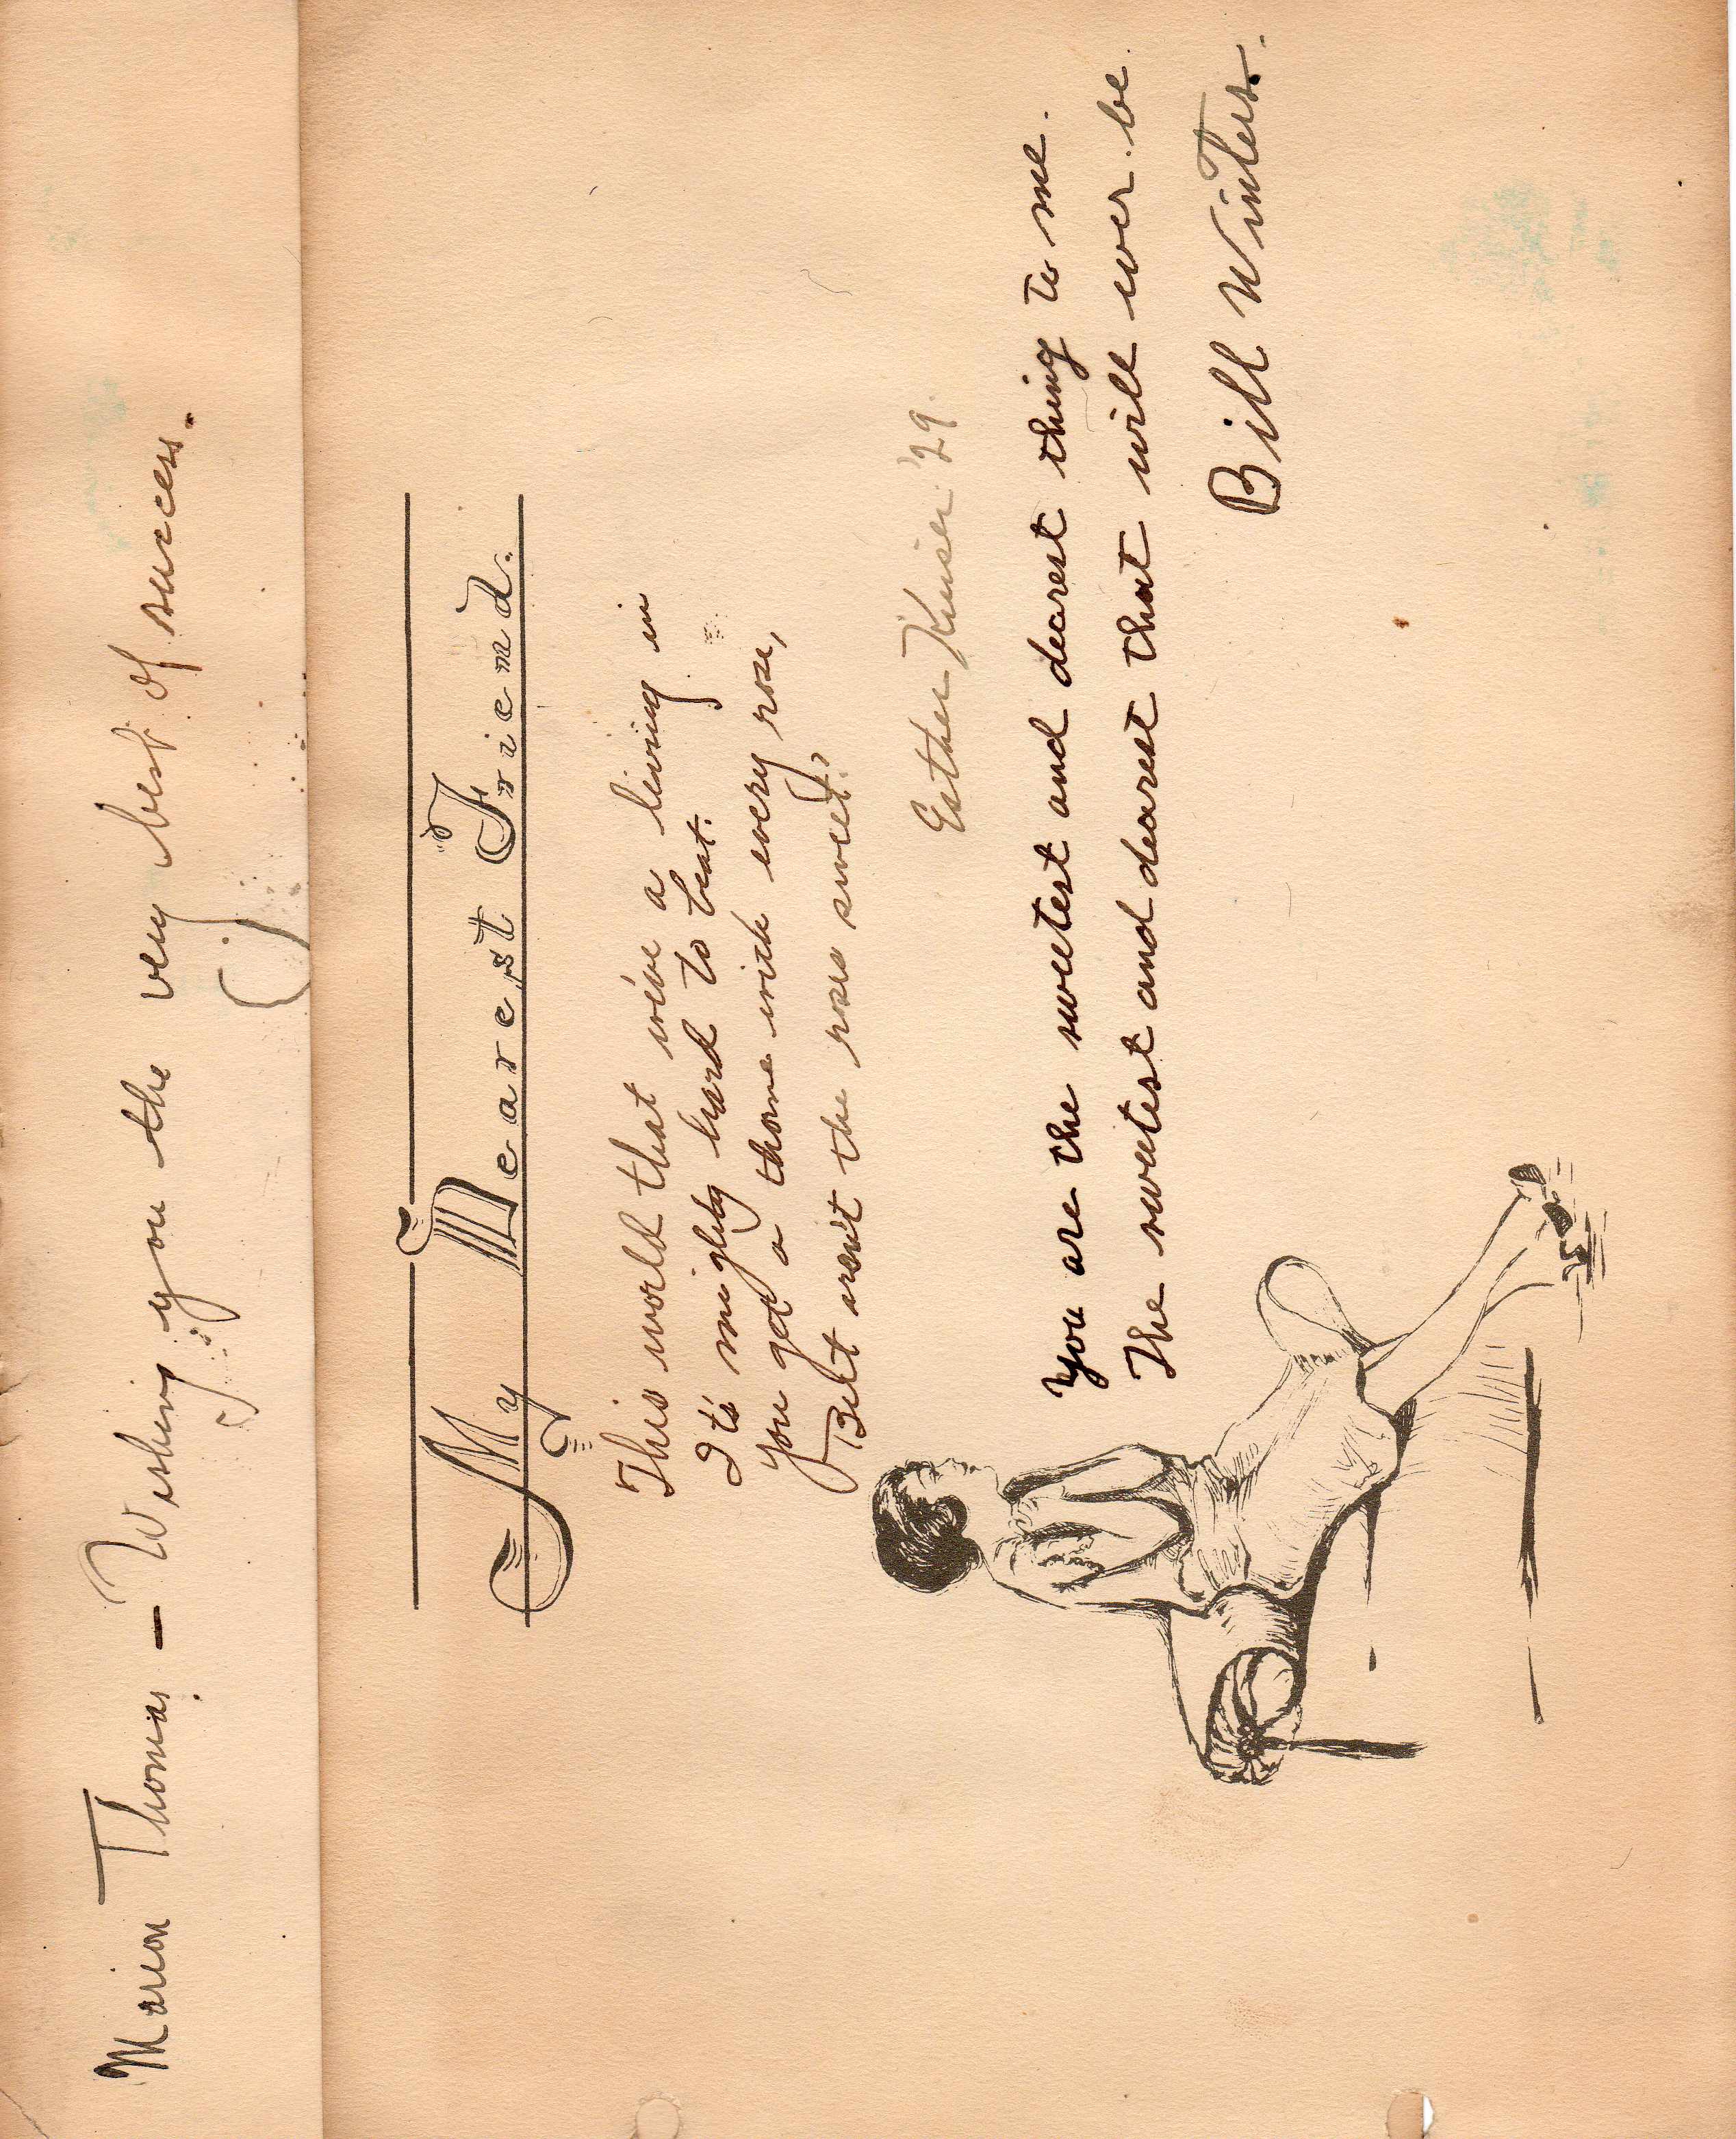 Marion Thomas – Wishing you the very best of success.
My Dearest Friend.
This world that we're a living in
It's mighty hard to beat.
You get a thorne with every rose,
But aren't the roses sweet?
Esther '29.
You are the sweetest and dearest thing to me.
The sweetest and dearest that will ever be
Bill Winters.